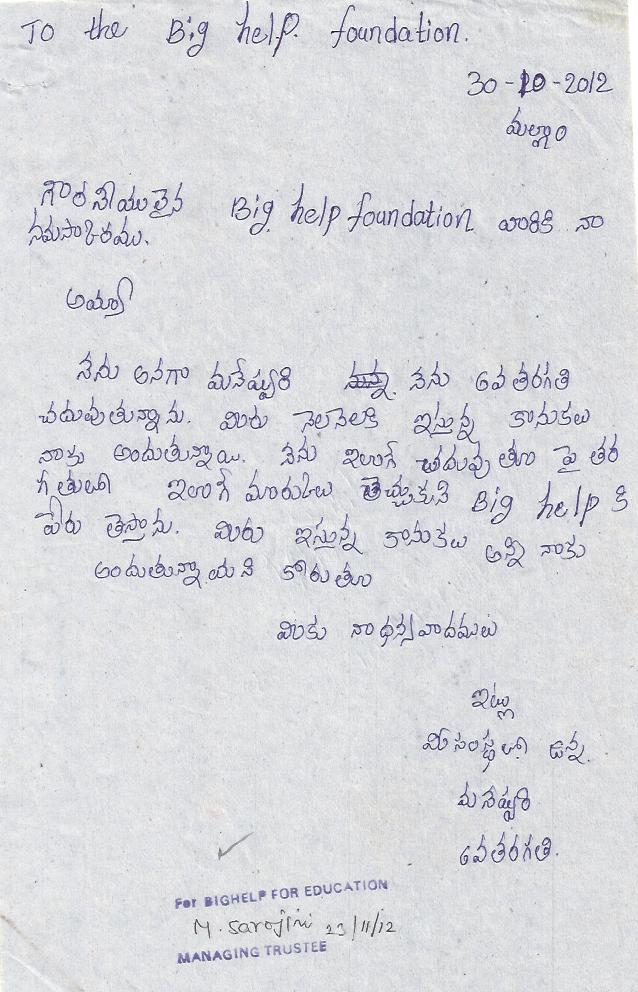 To the Big help. foundation.
30-10-2012
మల్లాం
గౌరనీయులైన Big help foundation వారికి నా
నమసాకరము.
అయ్యా
నేను అనగా మనేష్వరి నేను 6వ తరగతి
చదువుతున్నాను. మీరు నెలనెలకి ఇస్తున్న కానుకలు
నాకు అందుతున్నాయి. నేను ఇలాగే చదువుతూ పై తర
గతులో ఇలాగే మారుకులు తెచ్చుకుని Big help కి
పేరు తెస్తాను. మీరు ఇస్తున్న కానుకలు అన్ని నాకు
అందుతున్నాయని కోరుతూ
మీకు నా ధన్యవాదములు
ఇట్లు
మీ సంస్థలో ఉన్న.
మనేష్వరి
6వతరగతి.
For BIGHELP FOR EDUCATION
M. Sarojini 23/11/12
MANAGING TRUSTEE